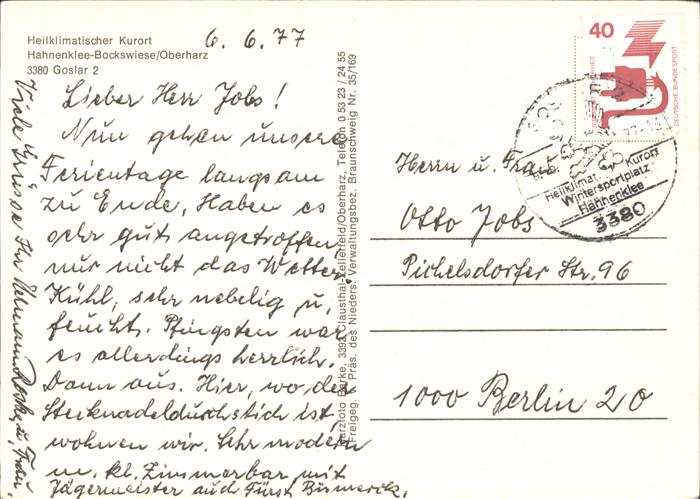 Heilklimatischer Kurort
Hahnenklee-Bockswiese/Oberharz
3380 Goslar 2
6. 6. 77
Lieber Herr Jobs!
Nun gehen unsere
Ferientage langsam
zu Ende, Haben es
sehr gut angetroffen
nur nicht das Wetter.
Kühl, sehr nebelig u,
feucht. Pfingsten war
es allerdings herrlich.
Dann aus. Hier, wo der
Stecknadeldurchstich ist,
wohnen wir. Sehr modern
m. kl. Zimmerbar mit
Jägermeister auch Fürst Bismarck.
Viele Grüsse Ihr u. Frau
Harzfoto Barke, 3392 Clausthal-Zellerfeld/Oberharz, Telefon 0 53 23 / 24 55
Freigeg. Präs. des Nieders. Verwaltungsbez. Braunschweig Nr. 35/169
40
DEUTSCHE BUNDESPOST
Heilklimat. Kurort
Wintersportplatz
Hahnenklee
3380
Herrn u. Frau
Otto Jobs
Pichelsdorfer Str, 96
1000 Berlin 20